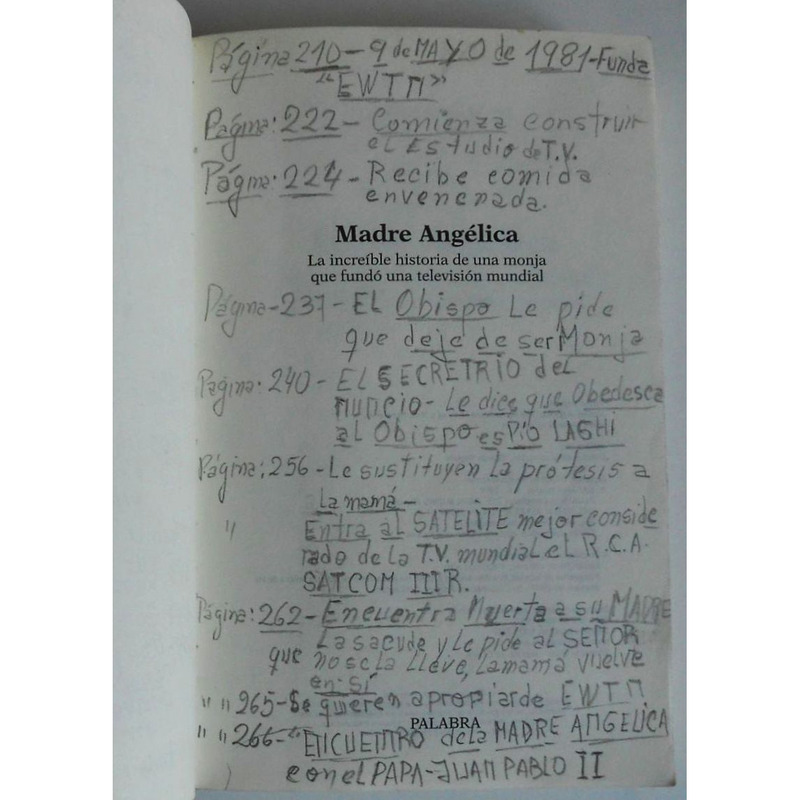 Página 210 - 9 de MAYO de 1981 - Funda
"EWTN"
Página: 222 - Comienza construir
el Estudio de T.V.
Página: 224 - Recibe comida
envenenada.
Madre Angélica
La increíble historia de una monja
que fundó una televisión mundial
Página - 237 - EL Obispo Le pide
que deje de ser Monja
Página: 240 - EL SECRETRIO del
NUNCIO - Le dice que Obedesca
al Obispo es PÍO LAGHI
Página: 256 - Le sustituyen la prótesis a
La mamá -
" Entra al SATELITE mejor conside
rado de la T.V. mundial el R.C.A.
SATCOM III R.
Página: 262 - Encuentra Muerta a su MADRE
La sacude y le pide al SEÑOR
que no se la lleve, la mamá vuelve
en sí
" " 265 - Se quieren apropiar de EWTN
PALABRA
" " 266 - ENCUENTRO de la MADRE ANGELICA
con el PAPA - JUAN PABLO II